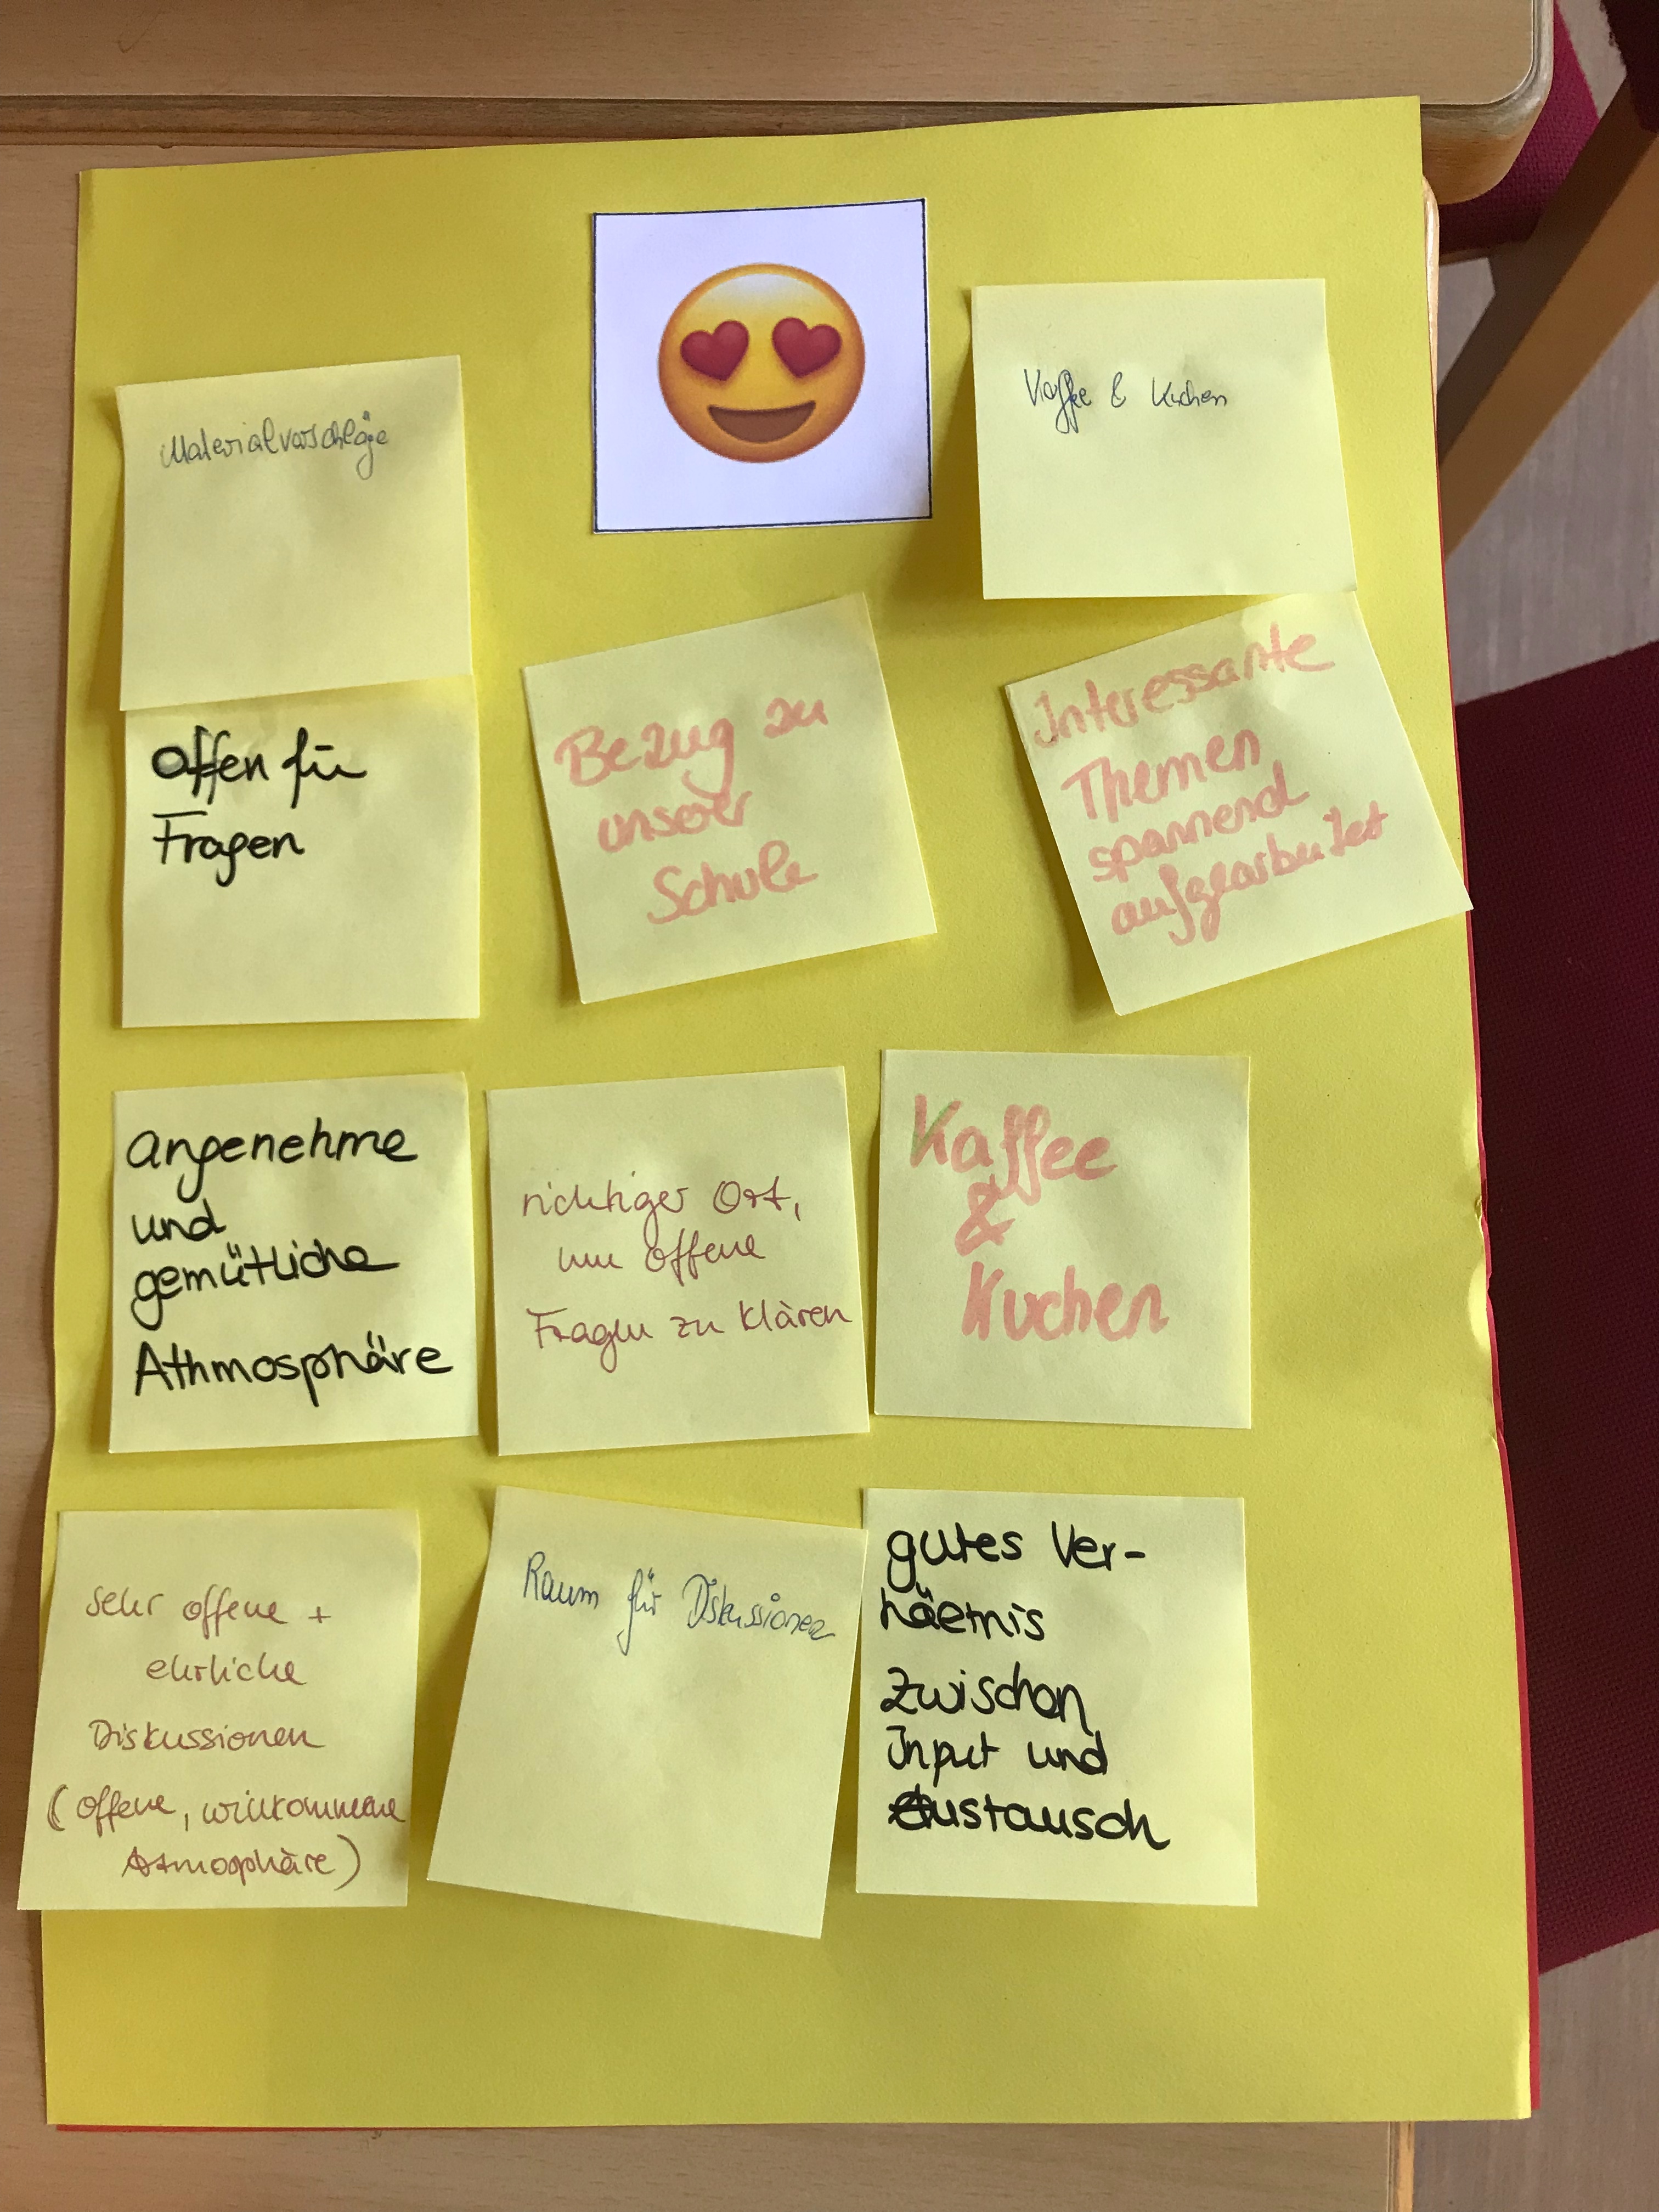 Materialvorschläge
Kaffee & Kuchen
Offen für
Fragen
Bezug zu
unserer
Schule
Interessante
Themen
spannend
aufgearbeitet
angenehme
und
gemütliche
Athmosphäre
richtiger Ort,
um offene
Fragen zu klären
Kaffee
&
Kuchen
sehr offene +
ehrliche
Diskussionen
(offene, willkommene
Atmosphäre)
Raum für Diskussionen
gutes Ver-
hältnis
zwischen
Input und
Austausch